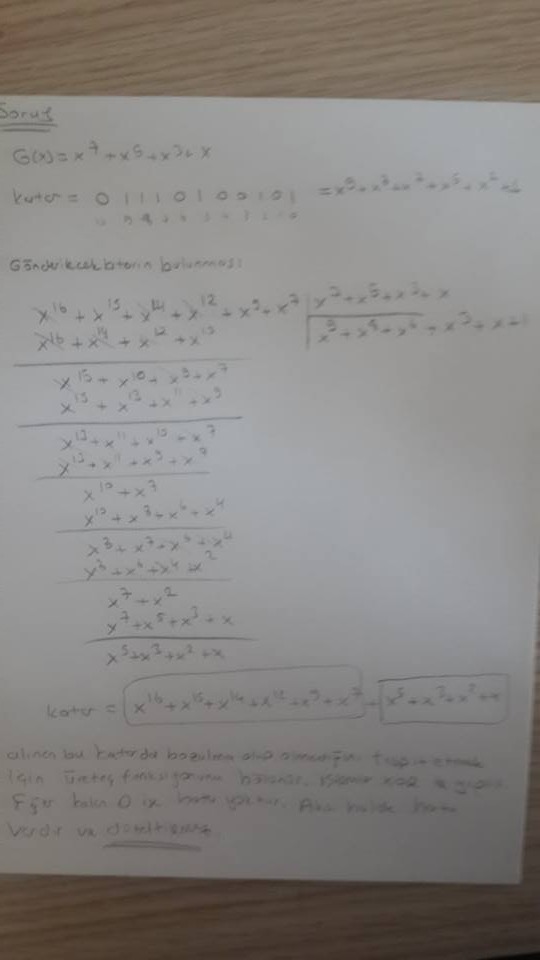 Soru
G(x) = x⁷ + x⁵ + x³ + x
katar = 0 1 1 1 0 1 0 0 1 0 1 = x⁹ + x⁸ + x⁷ + x⁵ + x² + 1
Gönderilecek katarın bulunması:
x¹⁶ + x¹⁵ + x¹⁴ + x¹² + x⁹ + x⁷ | x⁷ + x⁵ + x³ + x
x¹⁶ + x¹⁴ + x¹² + x¹⁰ x⁹ + x⁸ + x⁶ + x³ + x + 1
x¹⁵ + x¹⁰ + x⁹ + x⁷
x¹⁵ + x¹³ + x¹¹ + x⁹
x¹³ + x¹¹ + x¹⁰ + x⁷
x¹³ + x¹¹ + x⁹ + x⁷
x¹⁰ + x⁷
x¹⁰ + x⁸ + x⁶ + x⁴
x⁸ + x⁷ + x⁶ + x⁴
x⁸ + x⁶ + x⁴ + x²
x⁷ + x²
x⁷ + x⁵ + x³ + x
x⁵ + x³ + x² + x
katar = x¹⁶ + x¹⁵ + x¹⁴ + x¹² + x⁹ + x⁷ + x⁵ + x³ + x² + x
alınan bu katarda bozulma olup olmadığını tespit etmek
için üreteç fonksiyonuna bölünür.
Eğer kalan 0 ix hata yoktur. Aksi halde hata
vardır ve